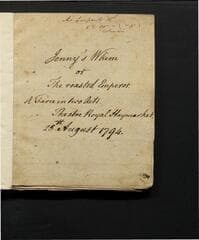 Jenny's Whim
or
The roasted Emperor.
A Farce in two Acts.
Theatre Royal Haymarket,
25th August 1794.